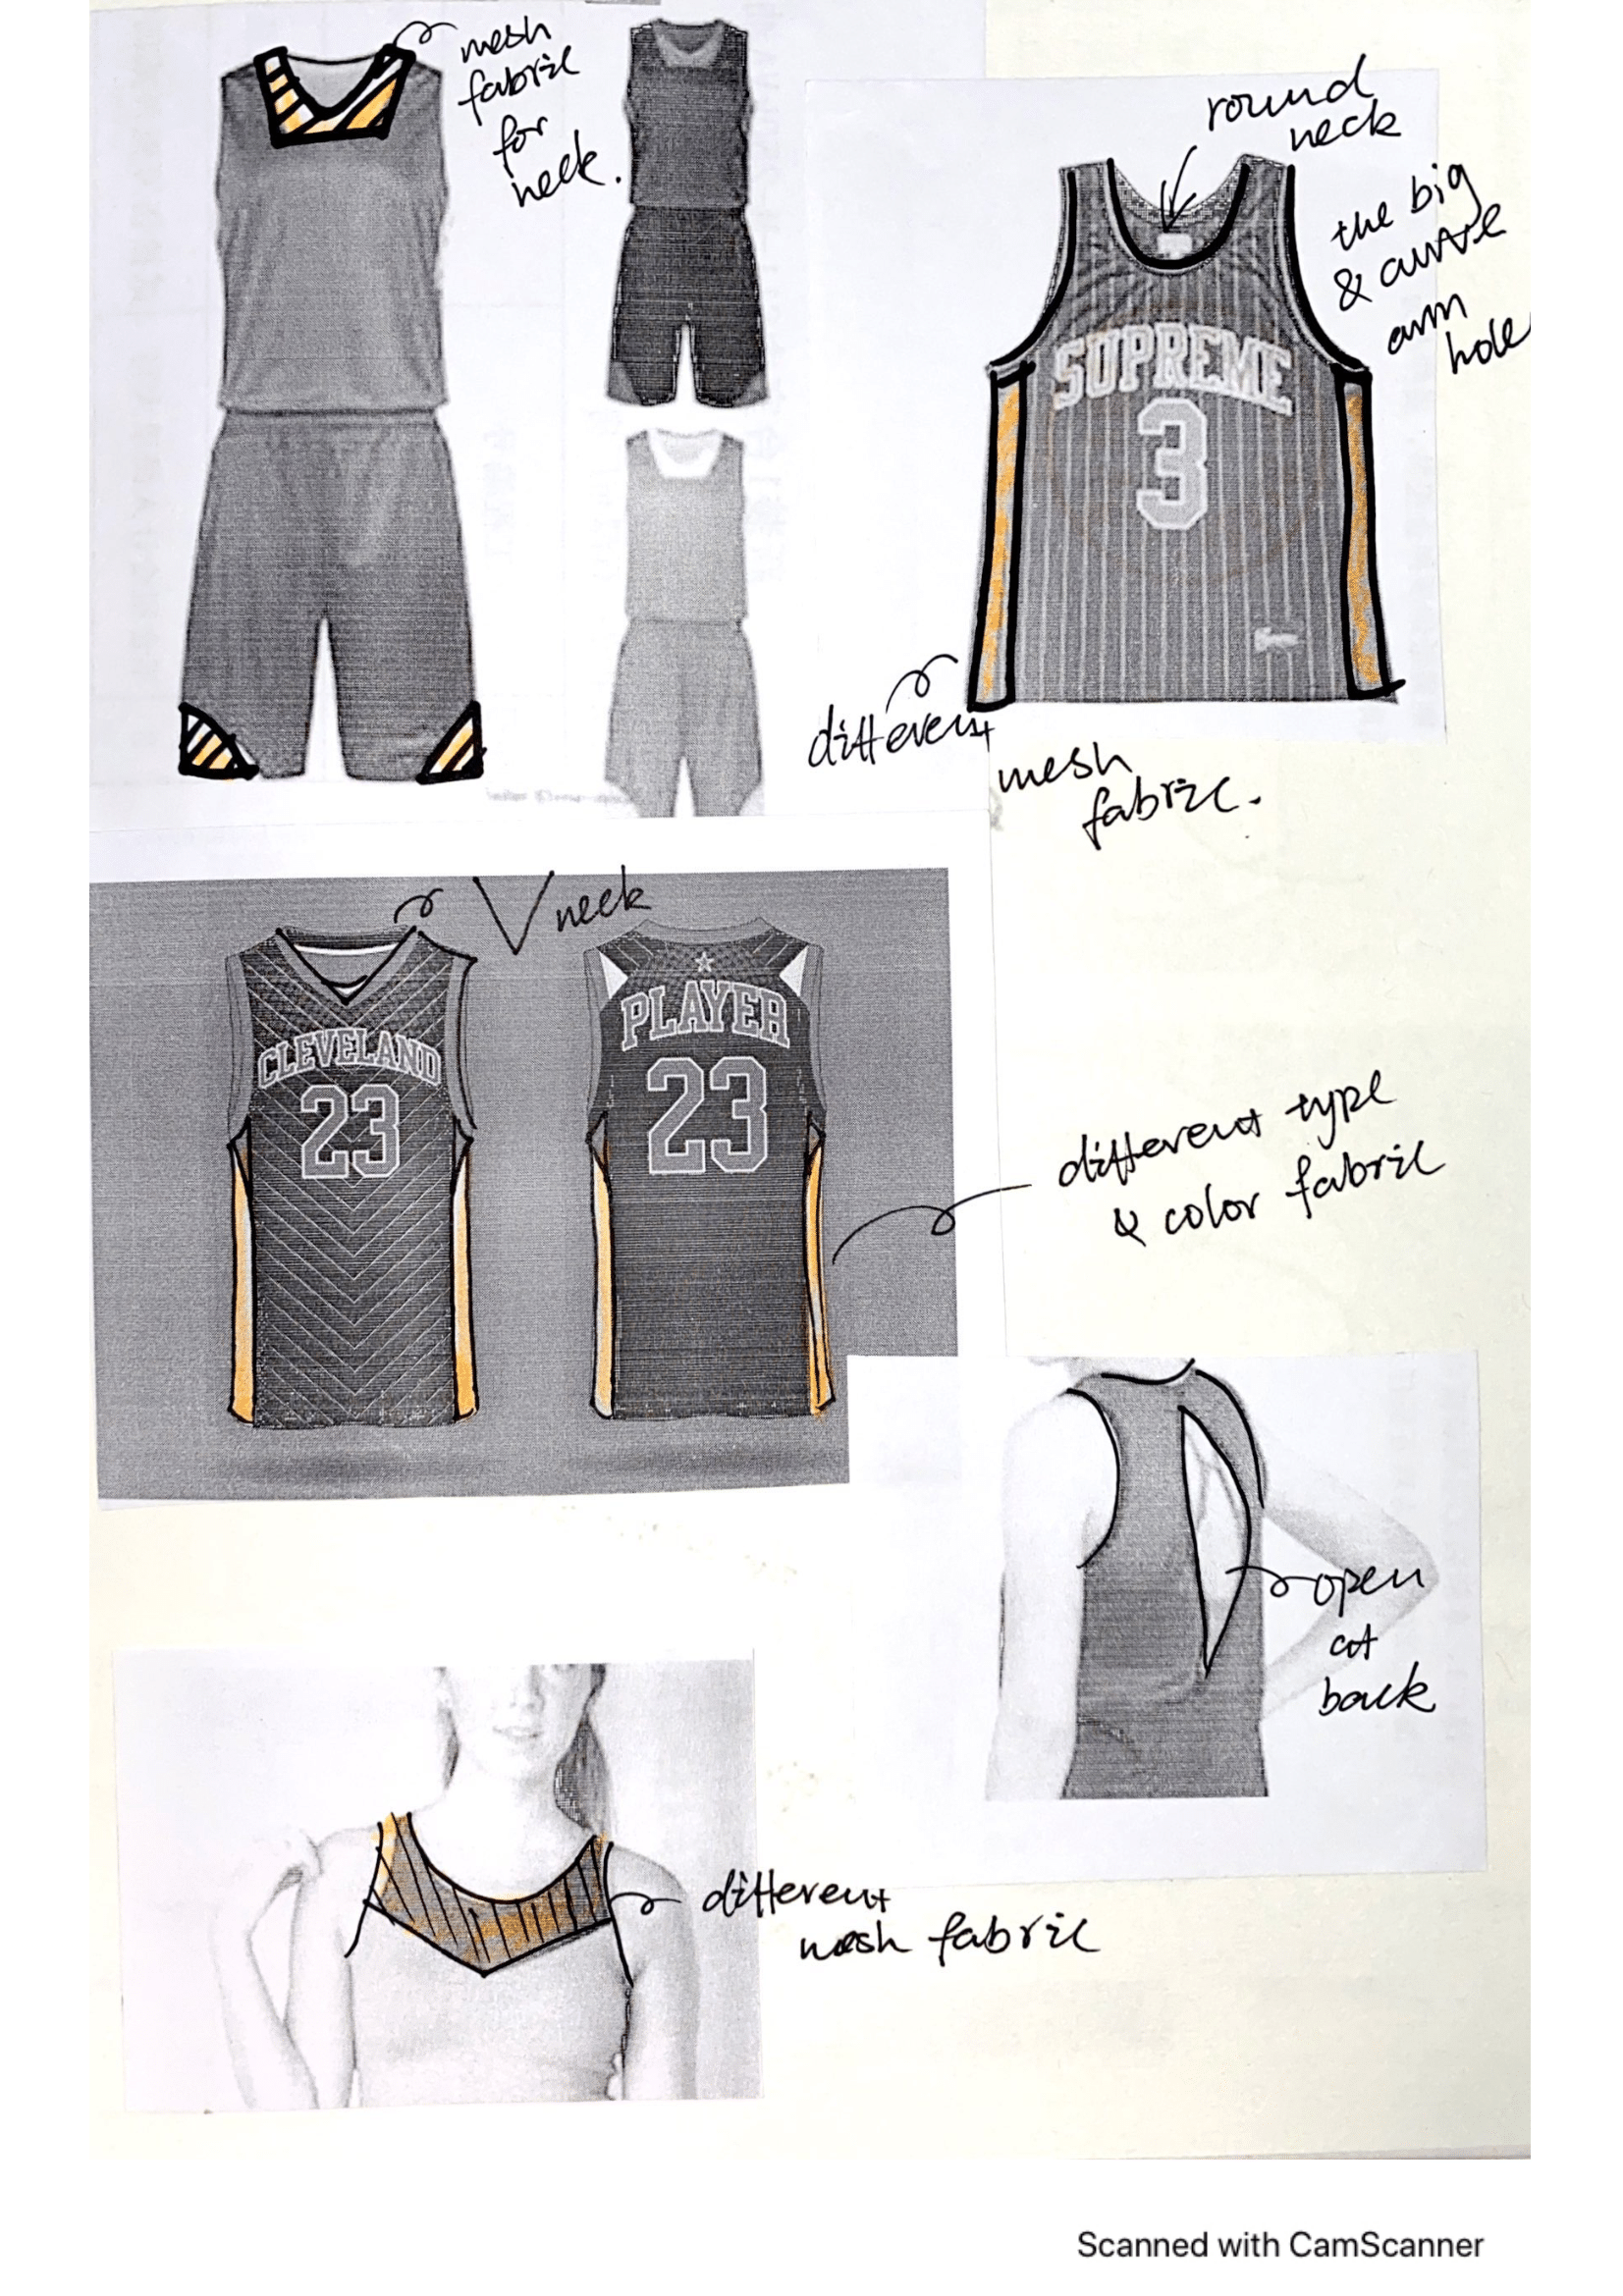 mesh
fabric
for
neck.
round
neck
the big
& curve
arm
hole
SUPREME
3
different
mesh
fabric.
V neck
CLEVELAND
23
PLAYER
23
different type
& color fabric
open
cut
back
different
mesh fabric
Scanned with CamScanner